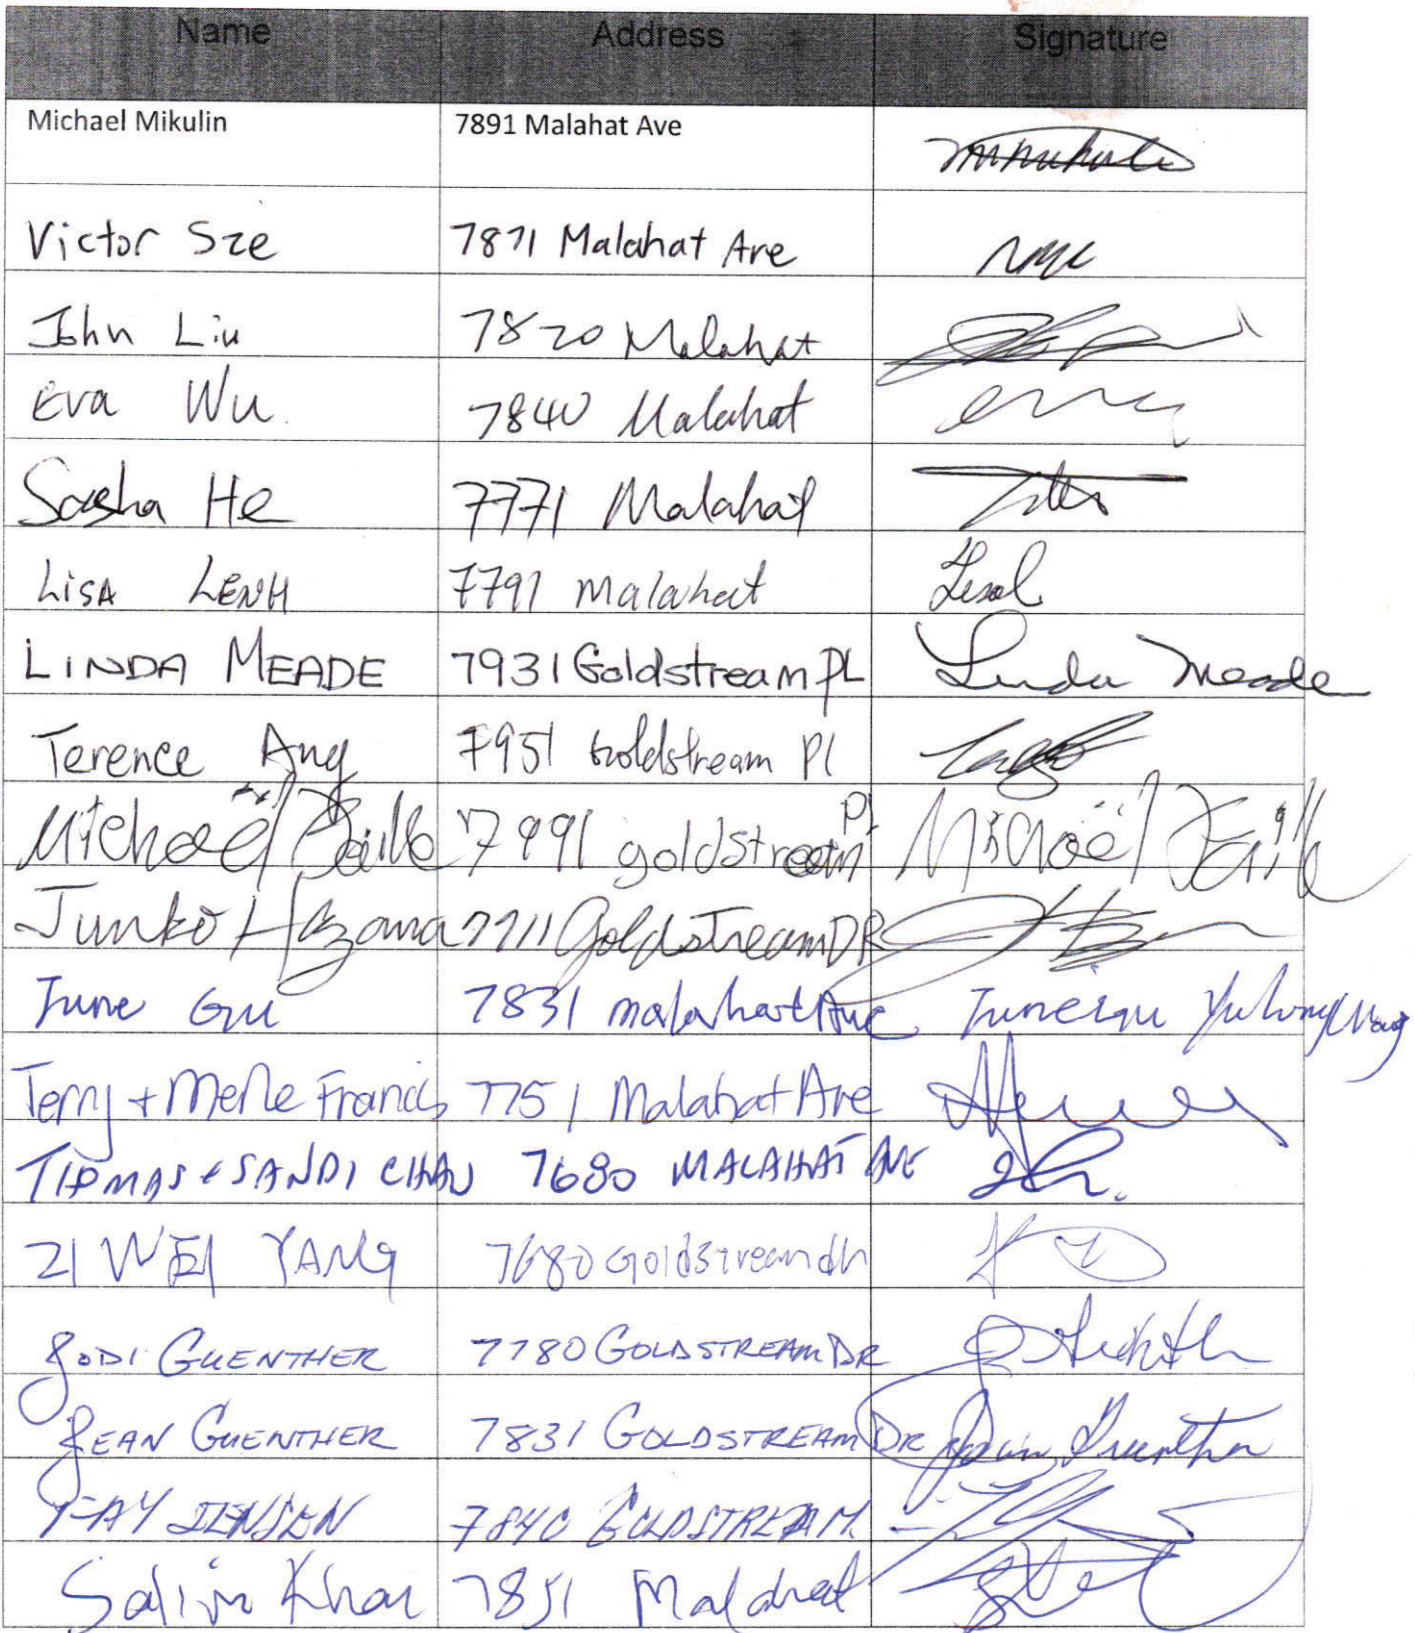 Name Address Signature
Michael Mikulin 7891 Malahat Ave
Victor Sze 7871 Malahat Ave
John Liu 7820 Malahat
Eva Wu. 7840 Malahat
Sasha He 7771 Malahat
LiSA LENH 7791 malahat
LINDA MEADE 7931 Goldstream PL Linda Meade
Terence Ang 7951 Goldstream Pl
Michaël 7991 goldstream PL Michaël
Junko Hazama 7711 GoldstreamDR
June Gu 7831 malahat Ave
Terry + Merle Francis 7751 Malahat Ave
THOMAS & SANDI CHAN 7680 MALAHAT AVE
ZI WEI YANG 7680 Goldstream
JODI GUENTHER 7780 GOLDSTREAM DR
JEAN GUENTHER 7831 GOLDSTREAM DR Jean Guenther
FAY JENSEN 7840 GOLDSTREAM.
Salim Khan 7851 Malahat